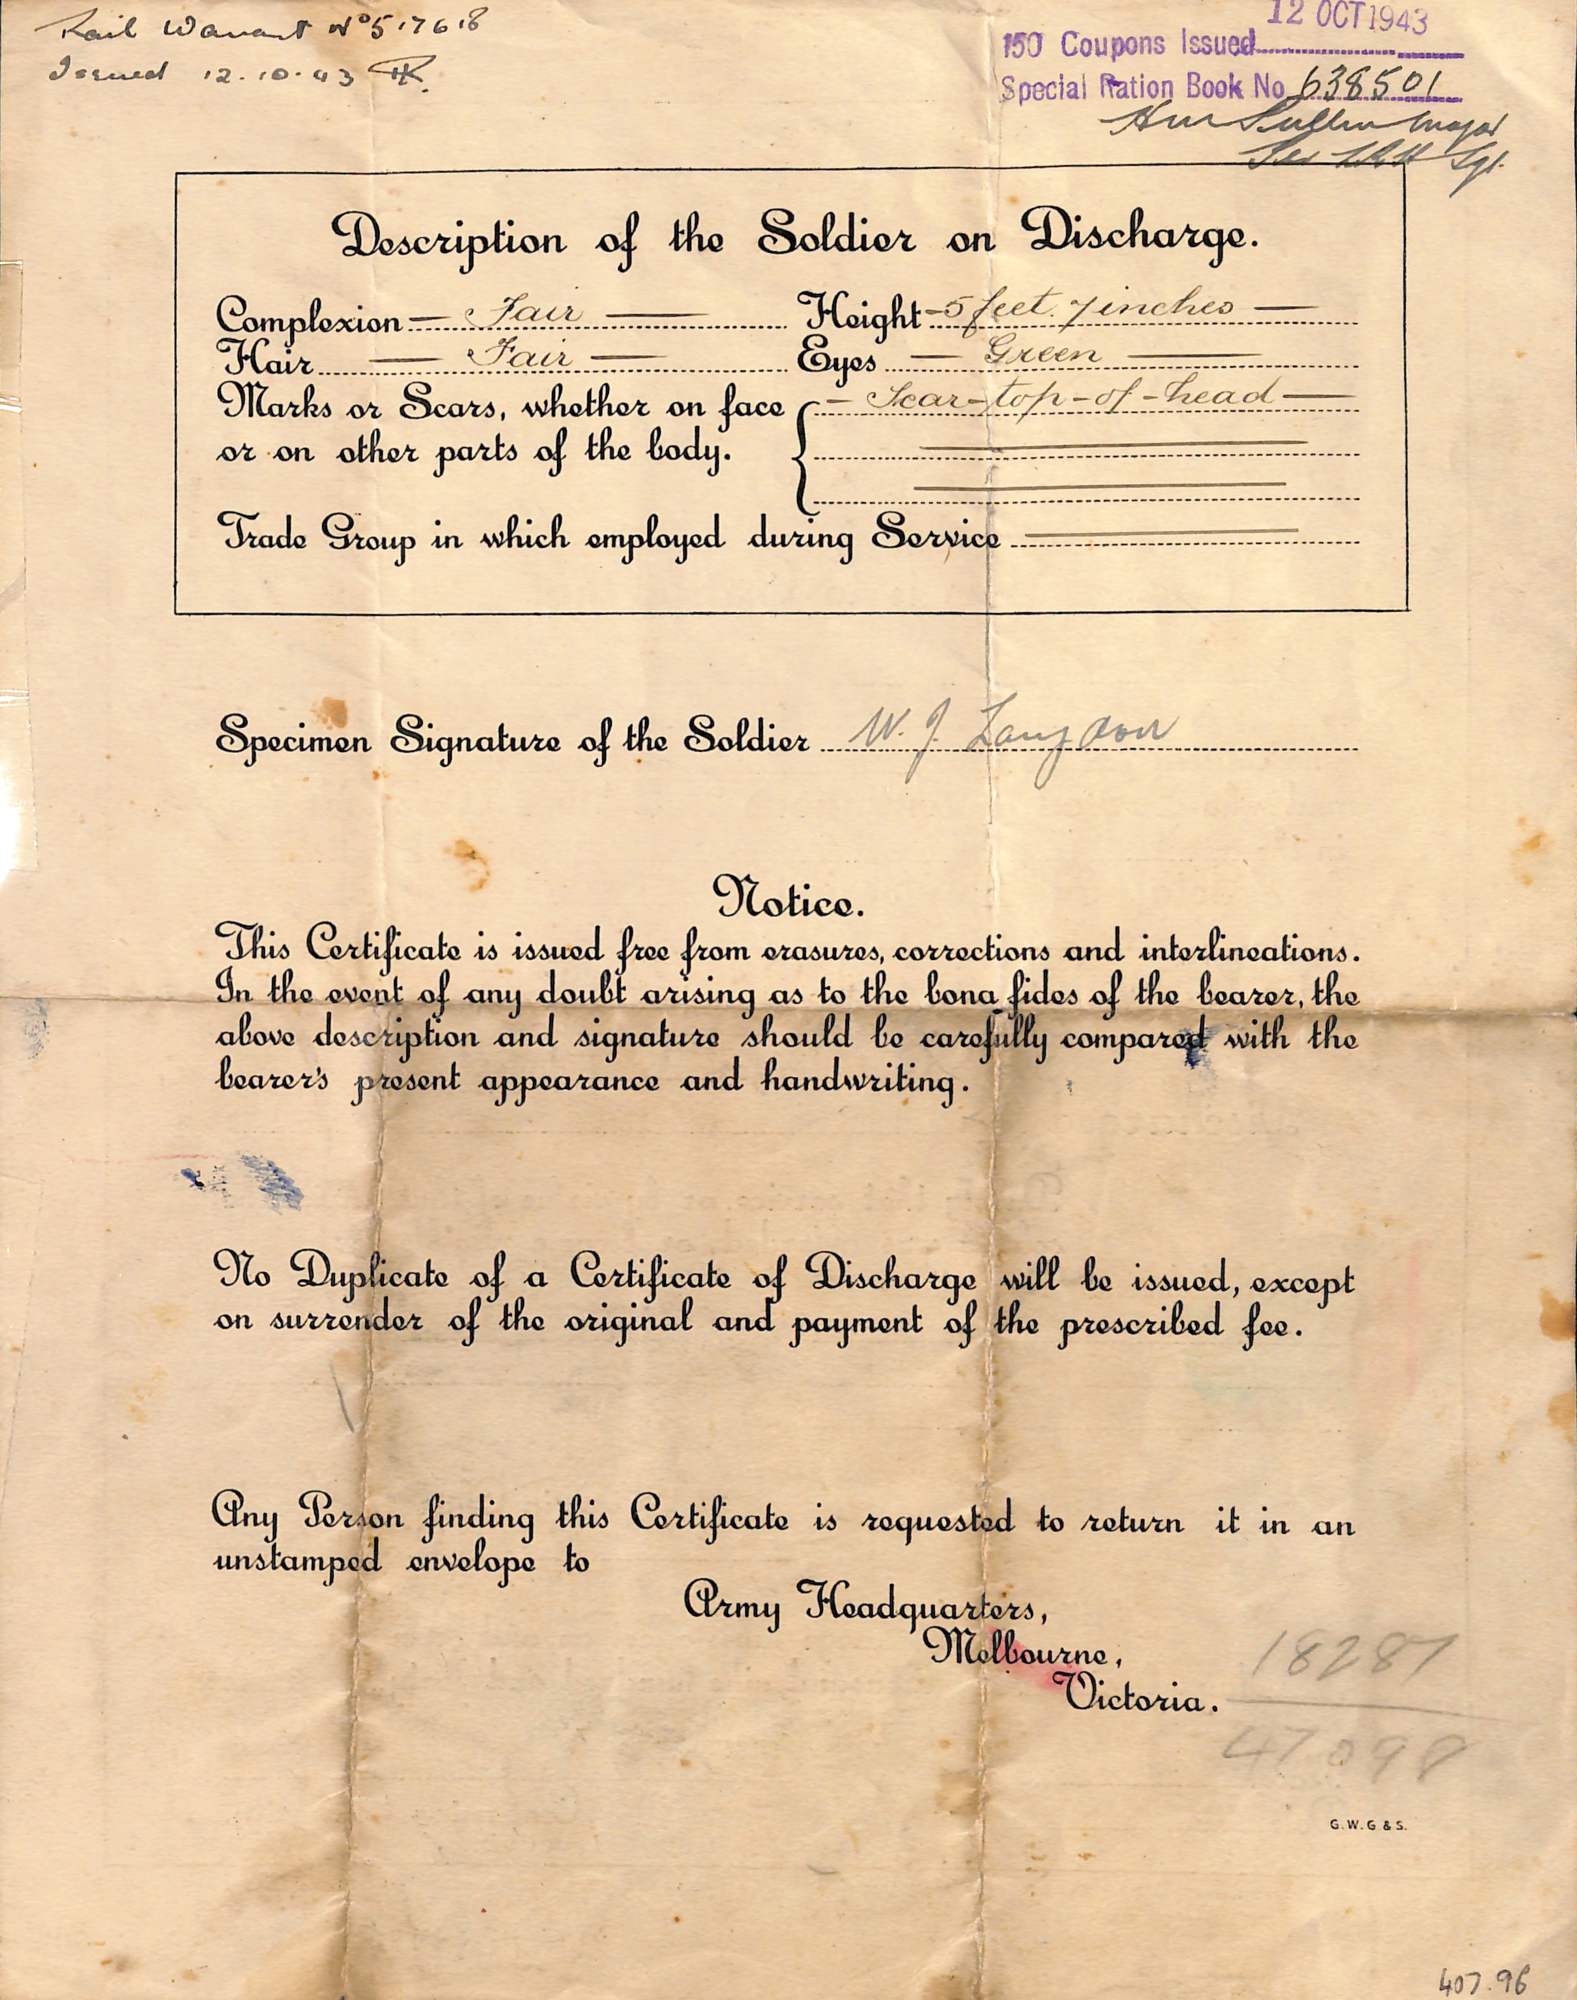 Rail Warrant No 517618
Issued 12.10.43
12 OCT 1943
150 Coupons Issued
Special Ration Book No 638501
Major
Description of the Soldier on Discharge.
Complexion — Fair — Height - 5 feet 7 inches —
Hair — Fair — Eyes — Green —
Marks or Scars, whether on face - Scar - top - of - head —
or on other parts of the body.
Trade Group in which employed during Service
Specimen Signature of the Soldier W. J. Langdon
Notice.
This Certificate is issued free from erasures, corrections and interlineations.
In the event of any doubt arising as to the bona fides of the bearer, the
above description and signature should be carefully compared with the
bearer's present appearance and handwriting.
No Duplicate of a Certificate of Discharge will be issued, except
on surrender of the original and payment of the prescribed fee.
Any Person finding this Certificate is requested to return it in an
unstamped envelope to
Army Headquarters,
Melbourne,
Victoria.
18287
47098
G.W.G & S.
407.96